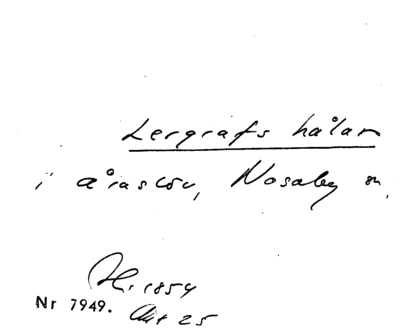 Lergrafs hålan
i Åraslöv, Nosaby sn.
Hi. 1854
Nr 7949. Akt 25